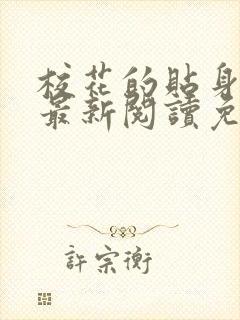 校花的貼身
最新閱讀免
許宗衡